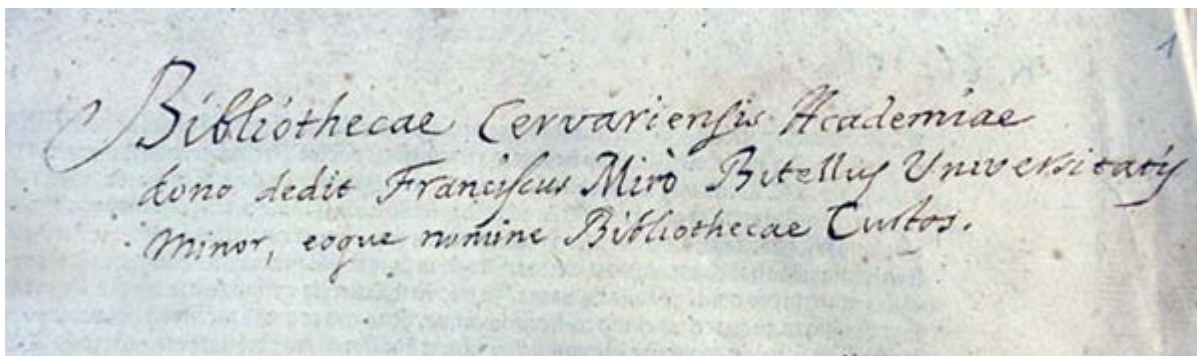 Bibliothecae Cervariensis Academiae
dono dedit Franciscus Mirò Bitellus Universitatis
Minor, eoque nomine Bibliothecae Custos.
1